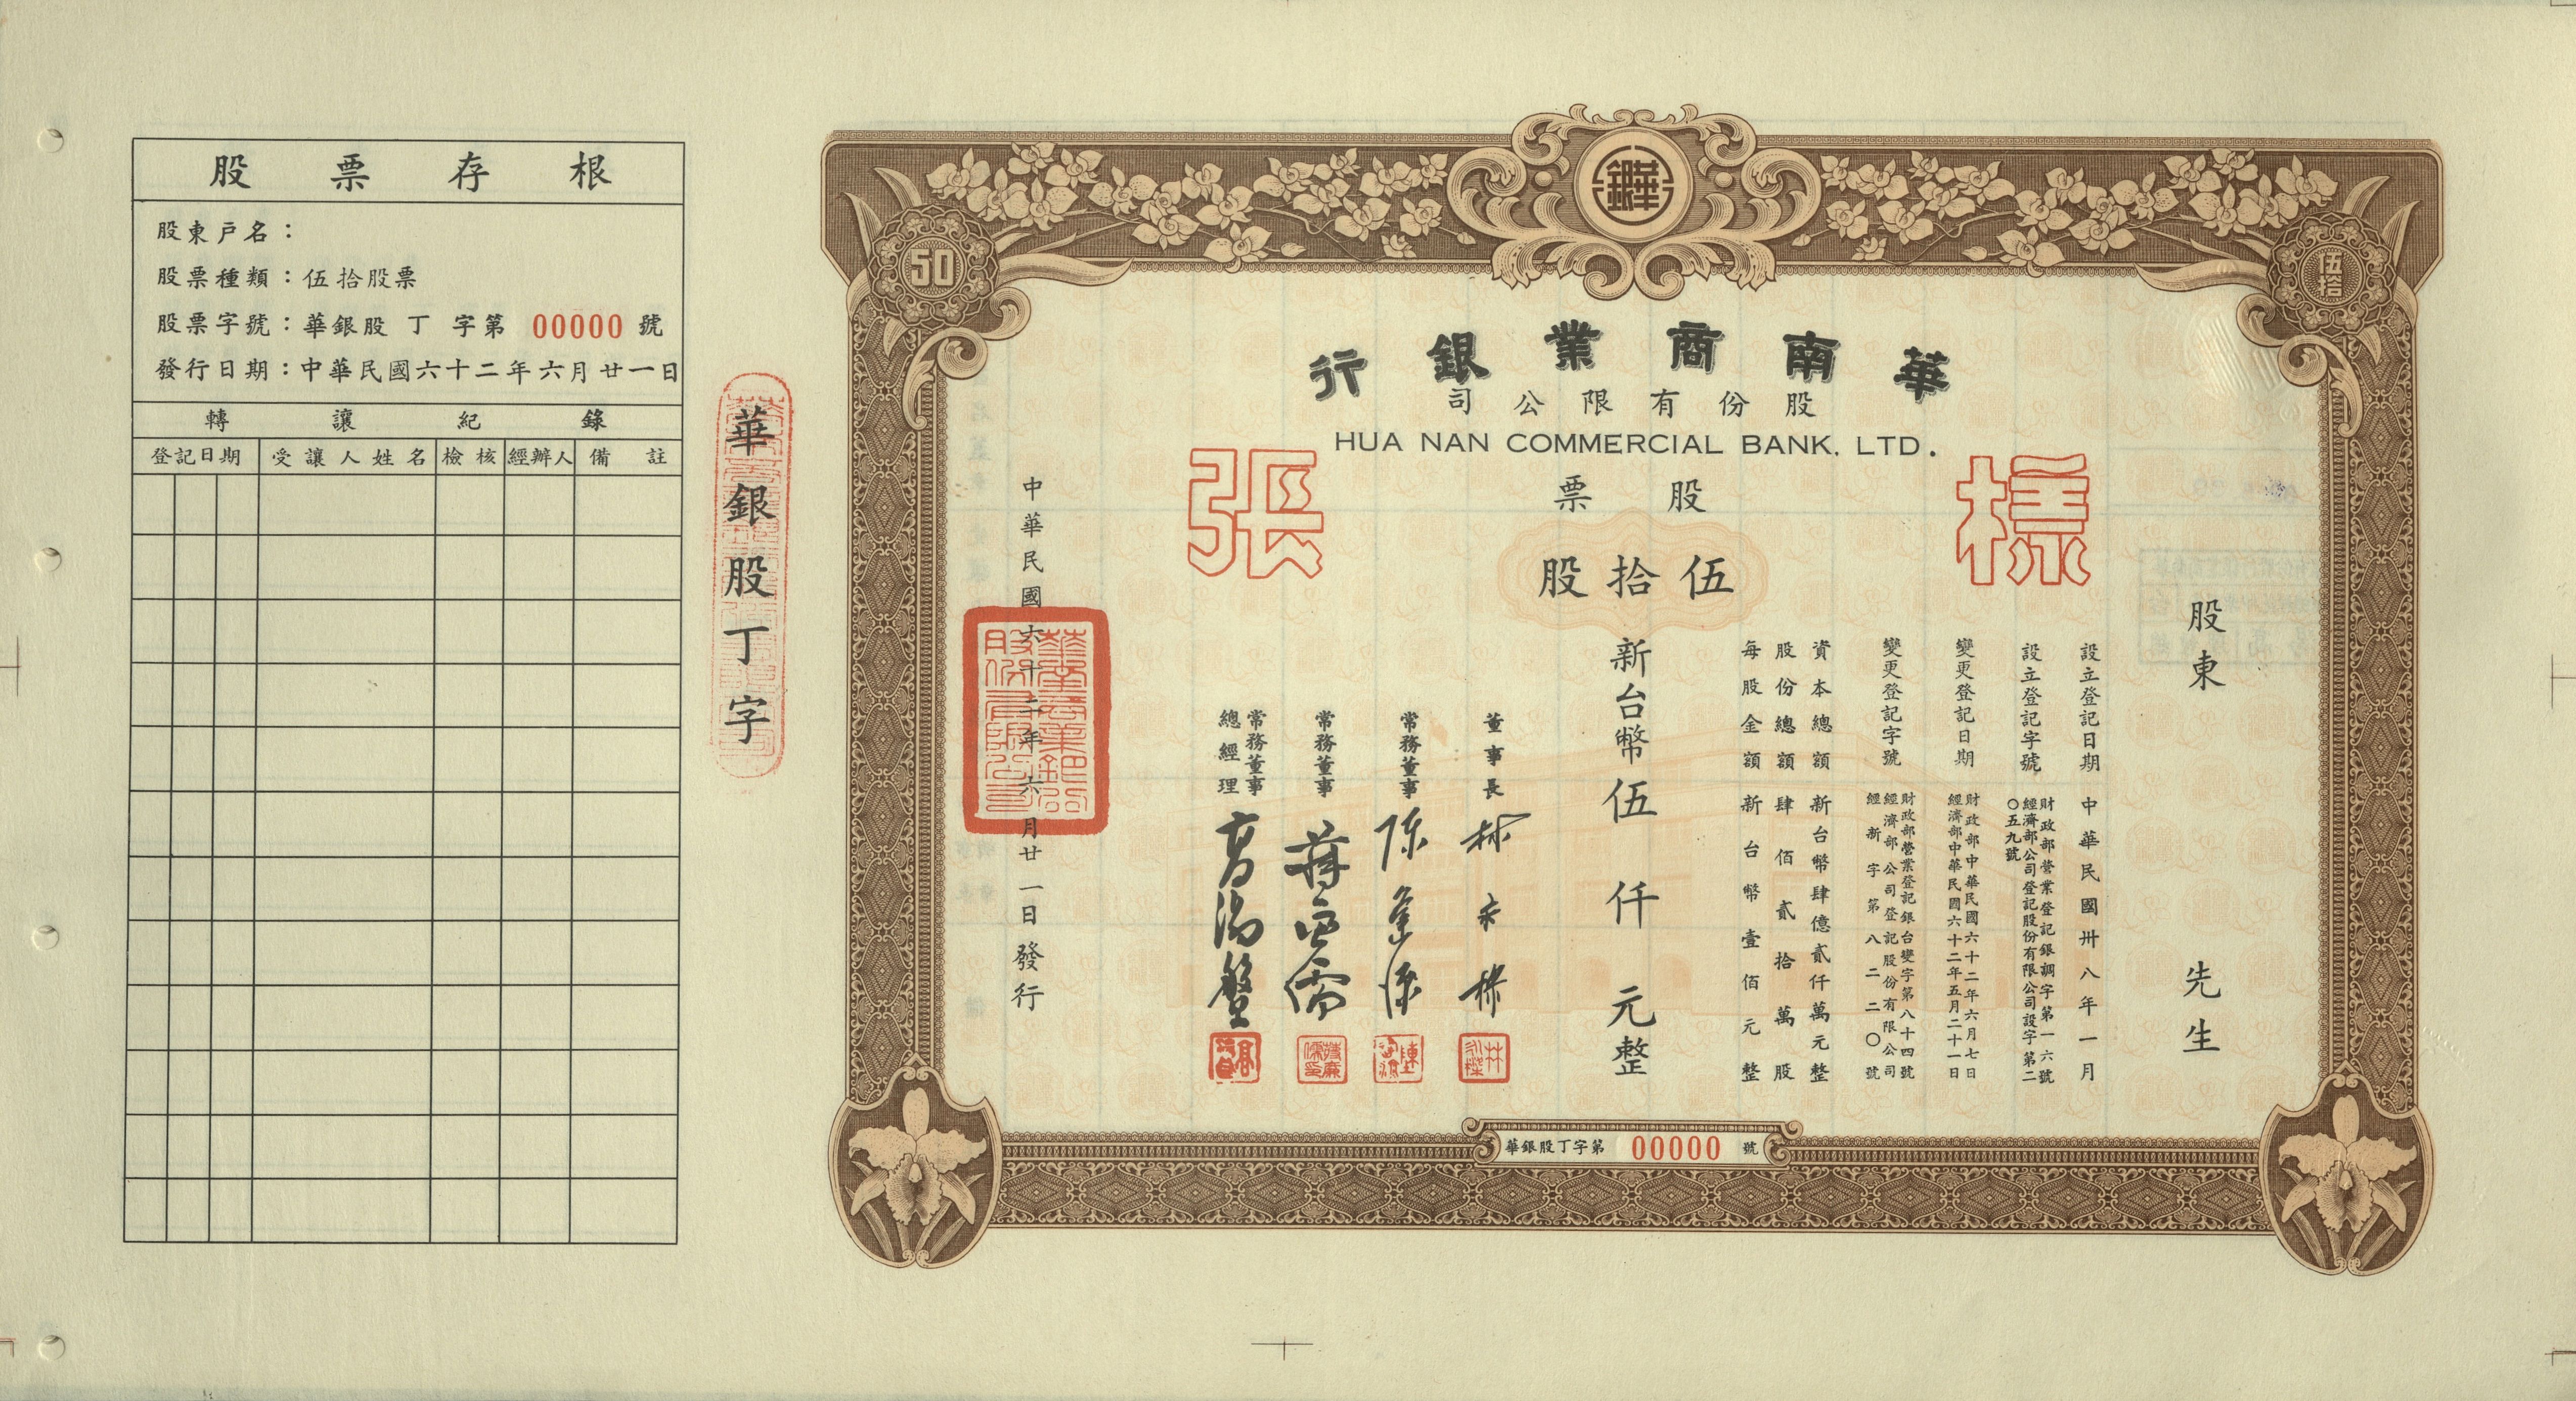 股票存根
股東戶名：
股票種類：伍拾股票
股票字號：華銀股 丁 字第 00000 號
發行日期：中華民國六十二年六月廿一日
轉讓紀錄
登記日期 受讓人姓名 檢核 經辦人 備註
華銀股丁字
50
華銀
伍拾
華南商業銀行
股份有限公司
HUA NAN COMMERCIAL BANK. LTD.
股票
樣張
伍拾股
股東 先生
設立登記日期 中華民國卅八年一月
設立登記字號 財政部營業登記銀調字第一六號
經濟部公司登記股份有限公司設字第二
〇五九號
變更登記日期 財政部中華民國六十二年六月七日
經濟部中華民國六十二年五月二十一日
變更登記字號 財政部營業登記銀台變字第八十四號
經濟部公司登記股份有限公司
經新字第八二二〇號
資本總額 新台幣肆億貳仟萬元整
股份總額 肆佰貳拾萬股
每股金額 新台幣壹佰元整
新台幣伍仟元整
董事長
常務董事
常務董事
常務董事
總經理
中華民國六十二年六月廿一日發行
華南商業銀行股份有限公司
華銀股丁字第 00000 號